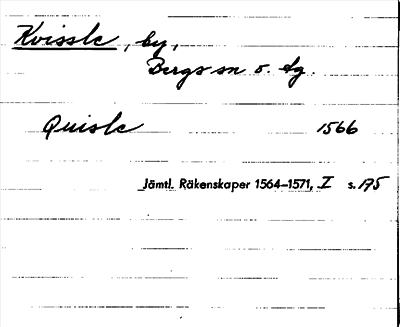 Kvissle, by,
Bergs sn o. tg.
Quisle 1566
Jämtl. Räkenskaper 1564–1571, I s. 175